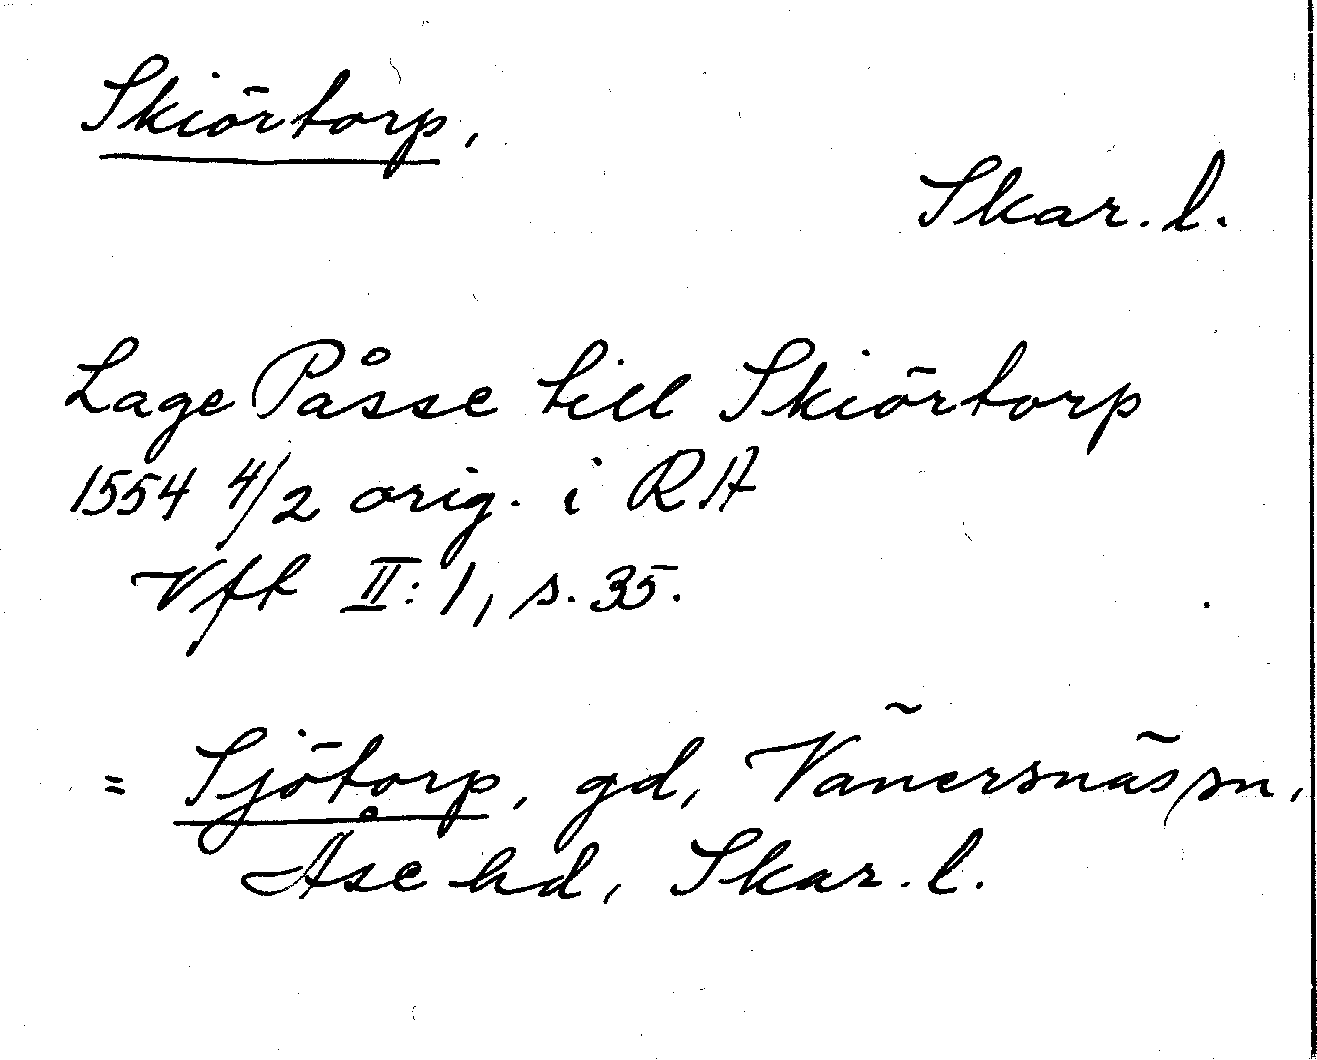 Skiörtorp,
Skar. l.
Lage Påsse till Skiörtorp
1554 4/2 orig. i RA
Vft II: 1, s. 35.
= Sjötorp, gd, Vänersnäs sn,
Åse hd, Skar. l.